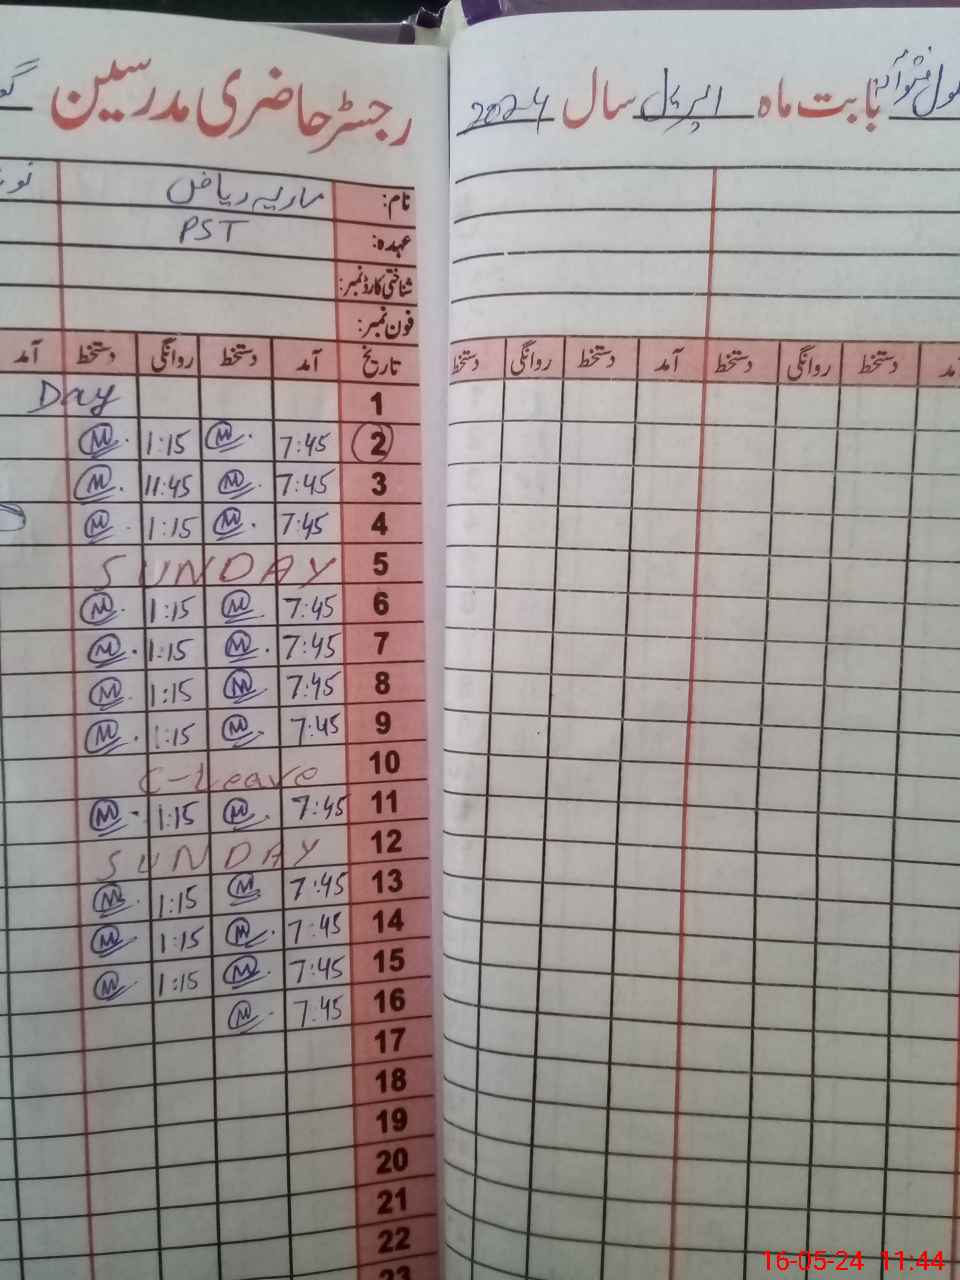 رجسٹر حاضری مدرسین
بابت ماہ اپریل سال 2024
نام: ماریہ ریاض
عہدہ: PST
شناختی کارڈ نمبر:
فون نمبر:
تاریخ آمد دستخط روانگی دستخط آمد
آمد دستخط روانگی دستخط آمد دستخط روانگی دستخط
1 Day
2 7:45 M 1:15 M
3 7:45 M 11:45 M
4 7:45 M 1:15 M
5 SUNDAY
6 7:45 M 1:15 M
7 7:45 M 1:15 M
8 7:45 M 1:15 M
9 7:45 M 1:15 M
10 C-Leave
11 7:45 M 1:15 M
12 SUNDAY
13 7:45 M 1:15 M
14 7:45 M 1:15 M
15 7:45 M 1:15 M
16 7:45 M
17
18
19
20
21
22
23
16-05-24 11:44